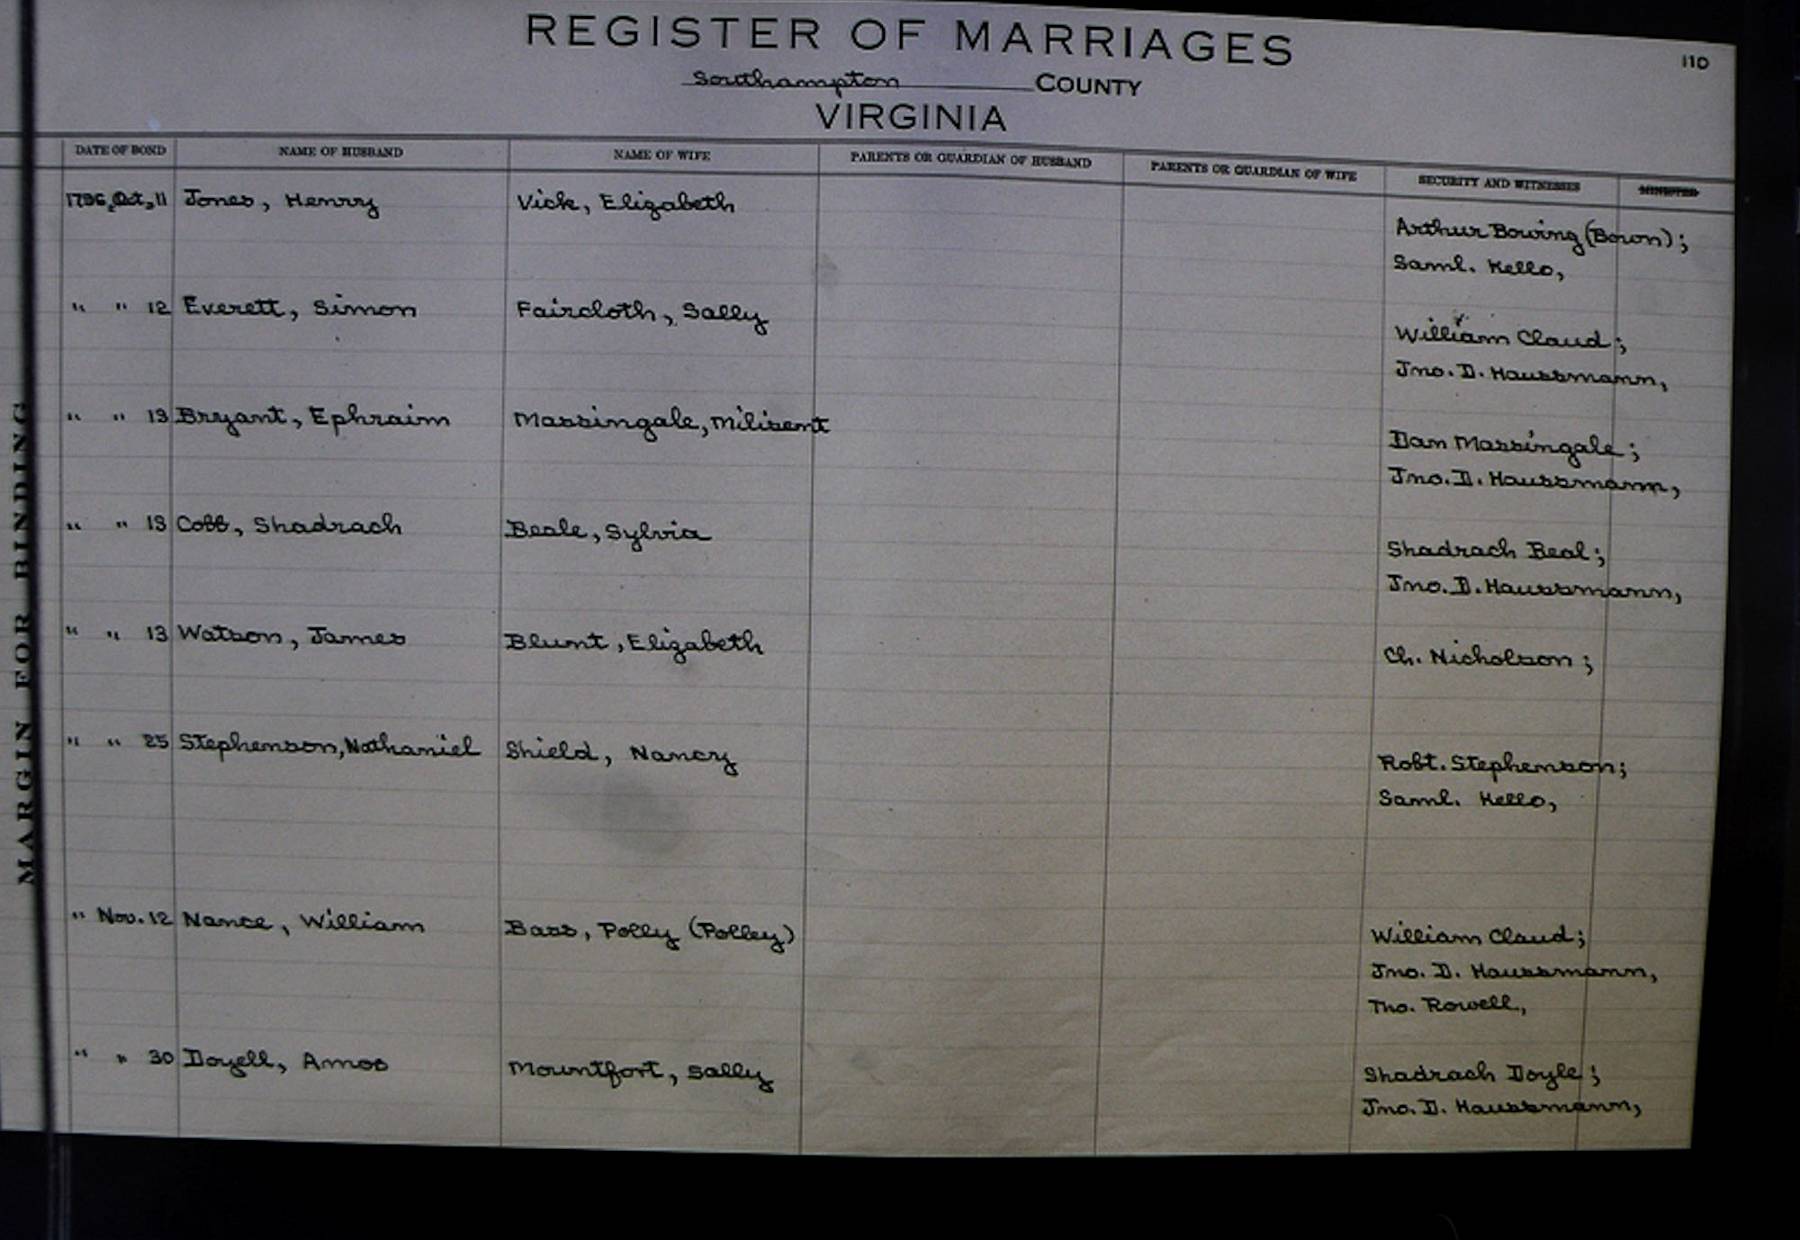 REGISTER OF MARRIAGES
110
Southampton COUNTY
VIRGINIA
DATE OF BOND NAME OF HUSBAND NAME OF WIFE PARENTS OR GUARDIAN OF HUSBAND PARENTS OR GUARDIAN OF WIFE SECURITY AND WITNESSES MINISTER
1796, Oct, 11 Jones, Henry Vick, Elizabeth
Arthur Bowing (Boron);
Saml. Kello,
" " 12 Everett, Simon Faircloth, Sally
William Claud;
Jno. D. Haussmann,
" " 13 Bryant, Ephraim Massingale, Milisent
Dan Massingale;
Jno. D. Haussmann,
" " 13 Cobb, Shadrach Beale, Sylvia
Shadrach Beal;
Jno. D. Haussmann,
" " 13 Watson, James Blunt, Elizabeth
Ch. Nicholson;
" " 25 Stephenson, Nathaniel Shield, Nancy
Robt. Stephenson;
Saml. Kello,
" Nov. 12 Nance, William Bass, Polly (Polley)
William Claud;
Jno. D. Haussmann,
Tho. Rowell,
" " 30 Doyell, Amos Mountfort, Sally
Shadrach Doyle;
Jno. D. Haussmann,
MARGIN FOR BINDING